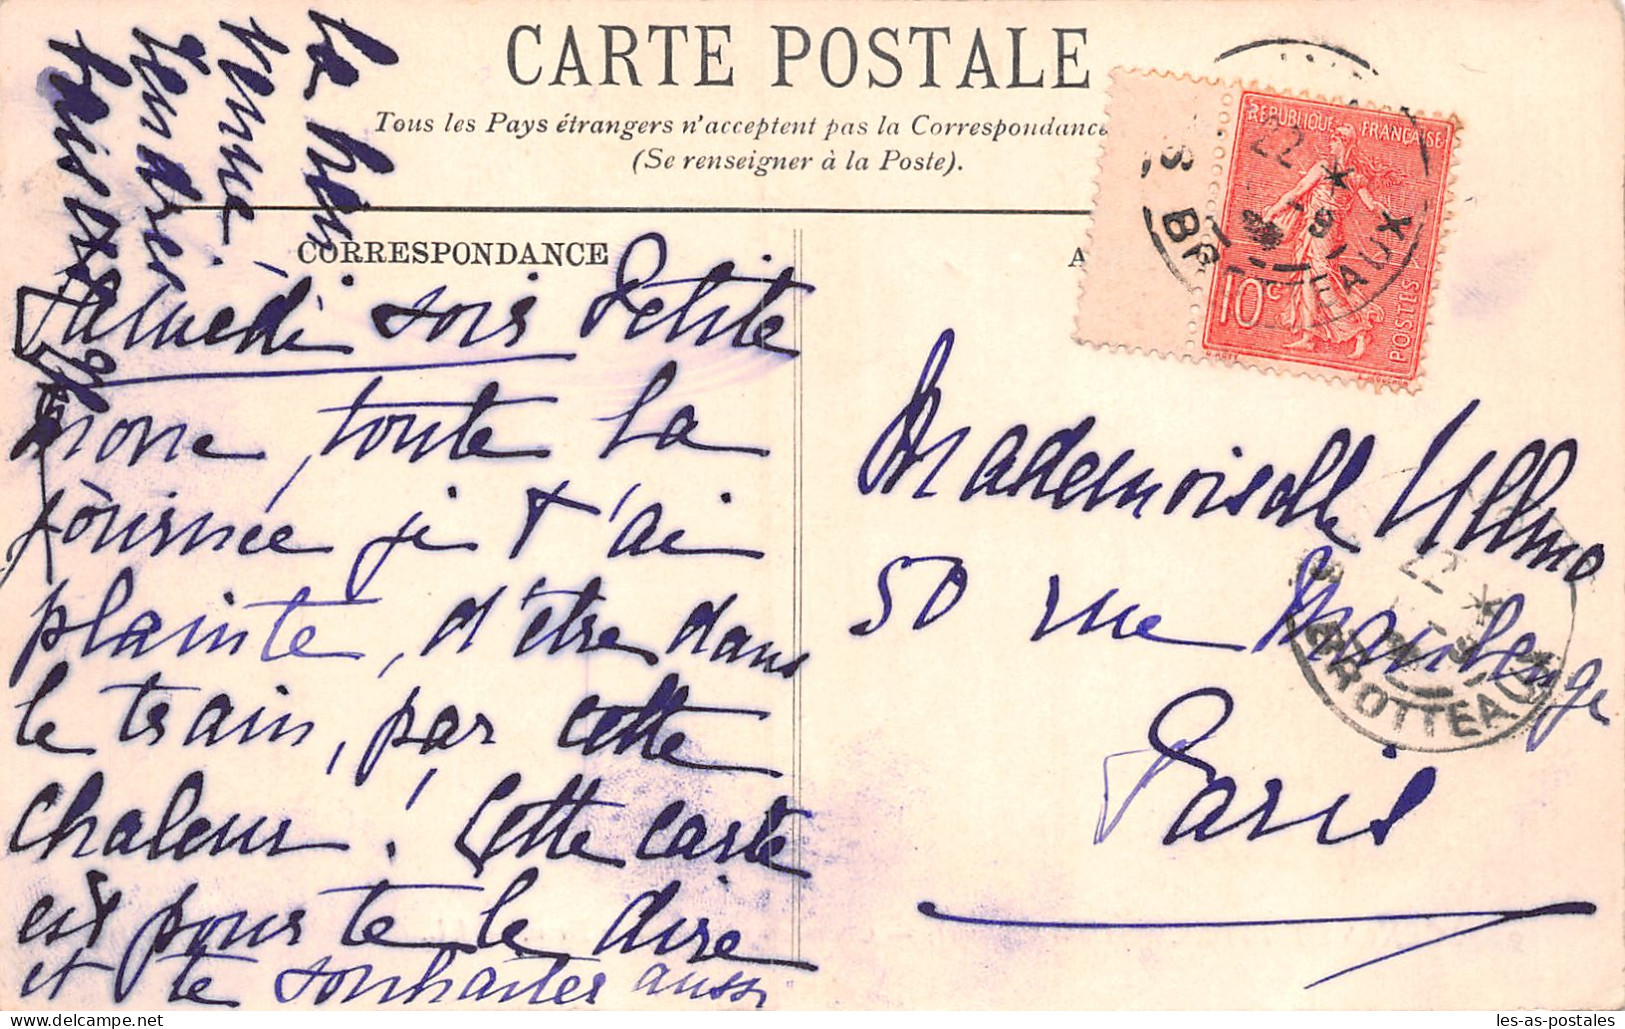 CARTE POSTALE
Tous les Pays étrangers n'acceptent pas la Correspondance
(Se renseigner à la Poste).
CORRESPONDANCE
A
REPUBLIQUE FRANÇAISE
10c
POSTES
22
BROTTEAUX
Samedi soir Petite
none, toute la
journée je t'ai
plainte, d'être dans
le train, par cette
chaleur! Cette carte
est pour te le dire
et te souhaiter aussi
la
venue
Vendredi
Mademoiselle Ullmo
50 rue Maubeuge
Paris
22
BROTTEAUX
les-as-postales